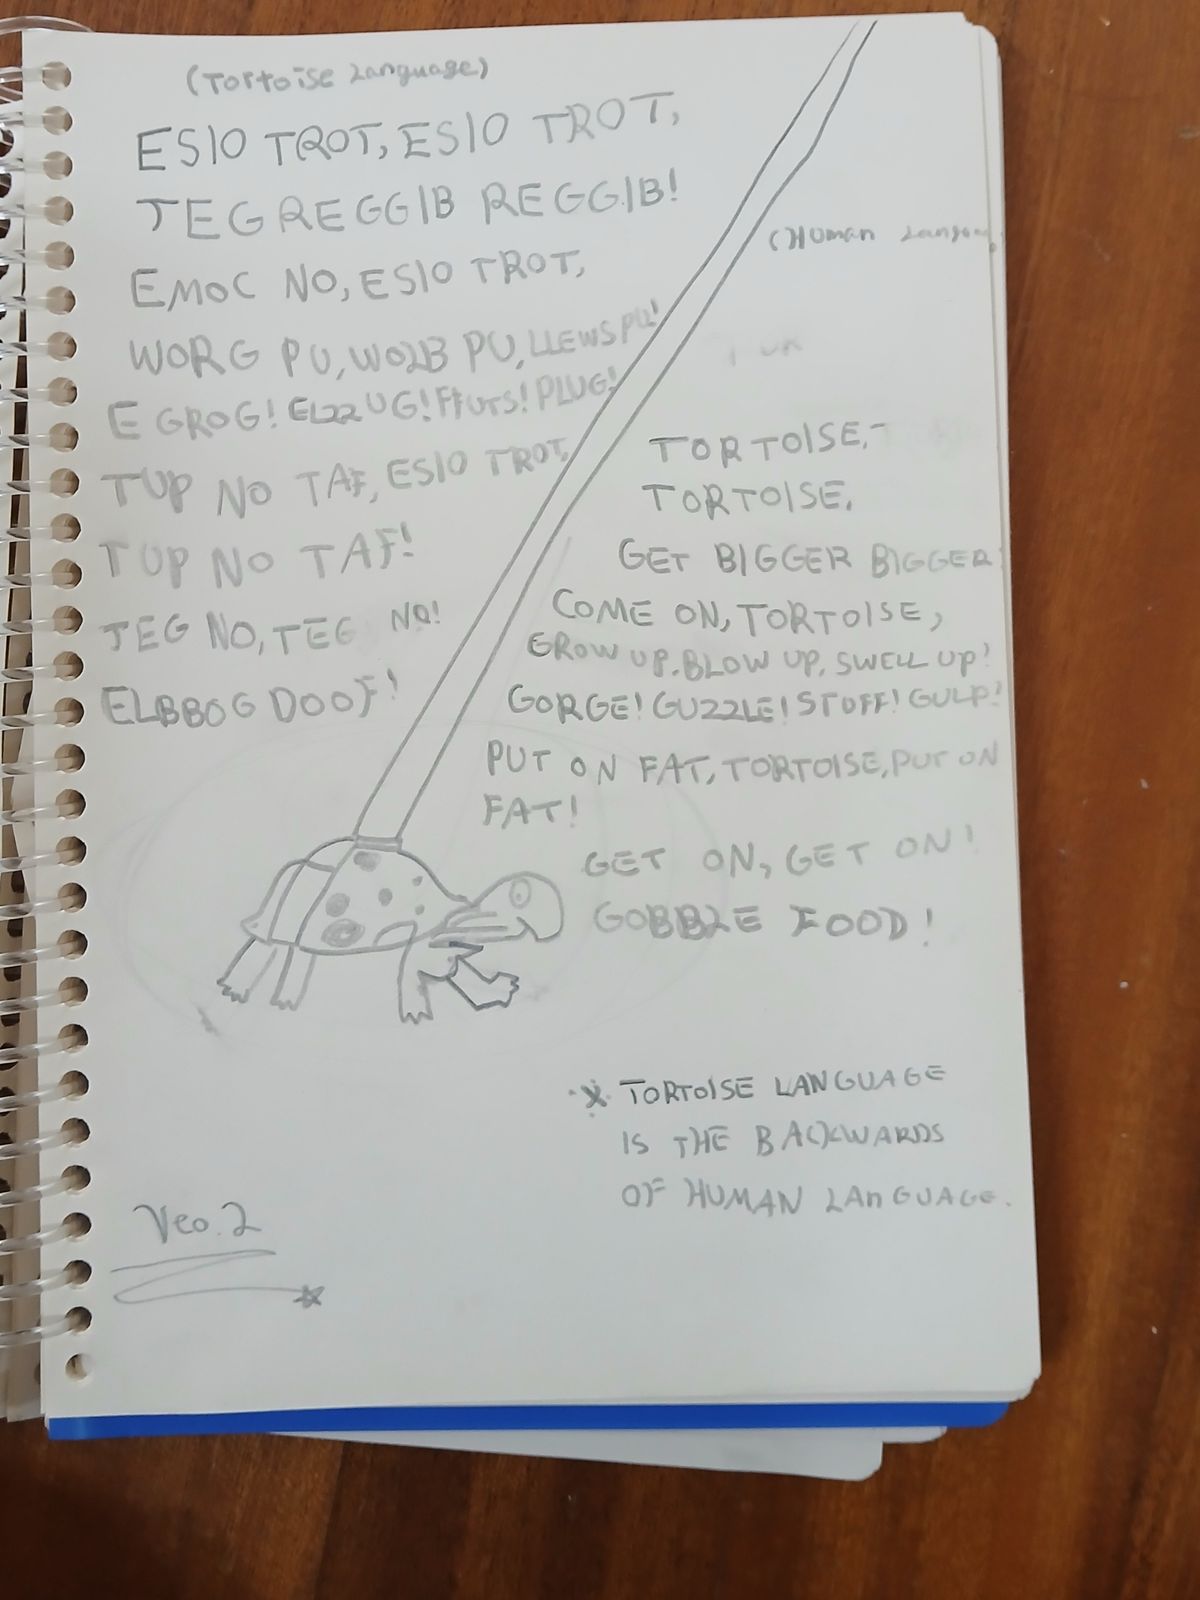 (Tortoise Language)
ESIO TROT, ESIO TROT,
TEG REGGIB REGGIB!
EMOC NO, ESIO TROT,
WORG PU, WOLB PU, LLEWS PU!
EGROG! ELZZUG! FFUTS! PLUG!
TUP NO TAF, ESIO TROT,
TUP NO TAF!
TEG NO, TEG NO!
ELBBOG DOOF!
(Human
TORTOISE,
TORTOISE,
GET BIGGER BIGGER
COME ON, TORTOISE,
GROW UP, BLOW UP, SWELL UP!
GORGE! GUZZLE! STUFF! GULP!
PUT ON FAT, TORTOISE, PUT ON
FAT!
GET ON, GET ON!
GOBBLE FOOD!
* TORTOISE LANGUAGE
IS THE BACKWARDS
OF HUMAN LANGUAGE.
Veo.2